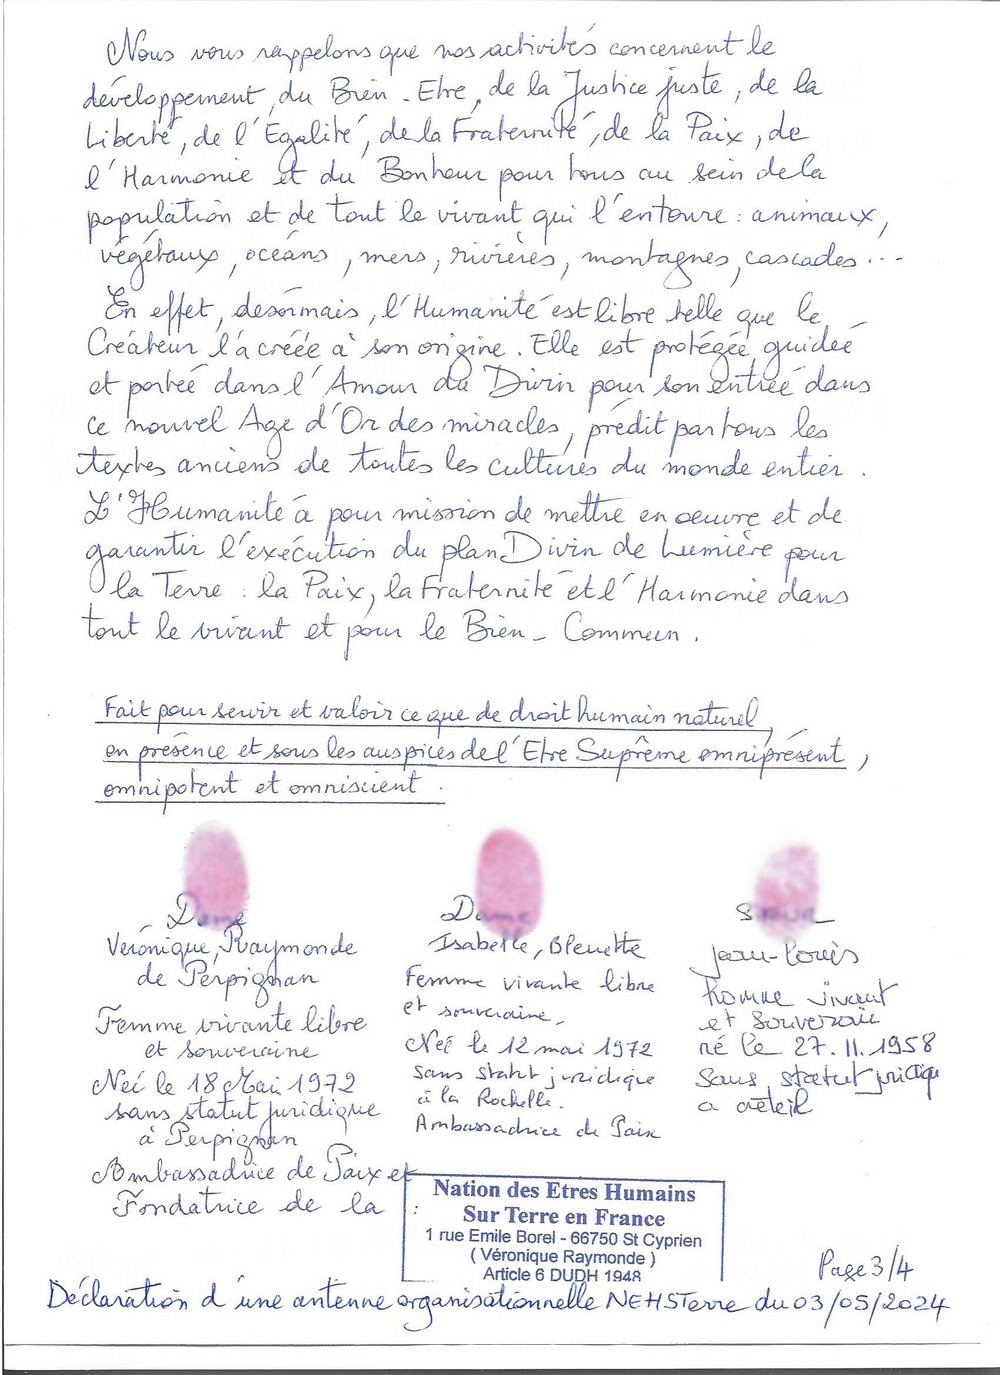 Nous vous rappelons que nos activités concernent le
développement du Bien-Etre, de la Justice juste, de la
Liberté, de l'Egalité, de la Fraternité, de la Paix, de
l'Harmonie et du Bonheur pour tous au sein de la
population et de tout le vivant qui l'entoure : animaux,
végétaux, océans, mers, rivières, montagnes, cascades...
En effet, désormais, l'Humanité est libre telle que le
Créateur l'a créée à son origine. Elle est protégée, guidée
et portée dans l'Amour du Divin pour son entrée dans
ce nouvel Age d'Or des miracles, prédit par tous les
textes anciens de toutes les cultures du monde entier.
L'Humanité a pour mission de mettre en oeuvre et de
garantir l'exécution du plan Divin de Lumière pour
la Terre : la Paix, la Fraternité et l'Harmonie dans
tout le vivant et pour le Bien-Commun.
Fait pour servir et valoir ce que de droit humain naturel,
en présence et sous les auspices de l'Etre Suprême omniprésent,
omnipotent et omniscient.
Dame
Véronique, Raymonde
de Perpignan
Femme vivante libre
et souveraine
Neé le 18 Mai 1972
sans statut juridique
à Perpignan
Ambassadrice de Paix et
Fondatrice de la :
Dame
Isabelle, Bleuette
Femme vivante libre
et souveraine,
Neé le 12 mai 1972
sans statut juridique
à la Rochelle.
Ambassadrice de Paix
Sieur
jean-louis
homme vivant
et souverain
né le 27.11.1958
sans statut juridique
a créteil
Nation des Etres Humains
Sur Terre en France
1 rue Emile Borel - 66750 St Cyprien
( Véronique Raymonde )
Article 6 DUDH 1948
Page 3/4
Déclaration d'une antenne organisationnelle NEHSTerre du 03/05/2024